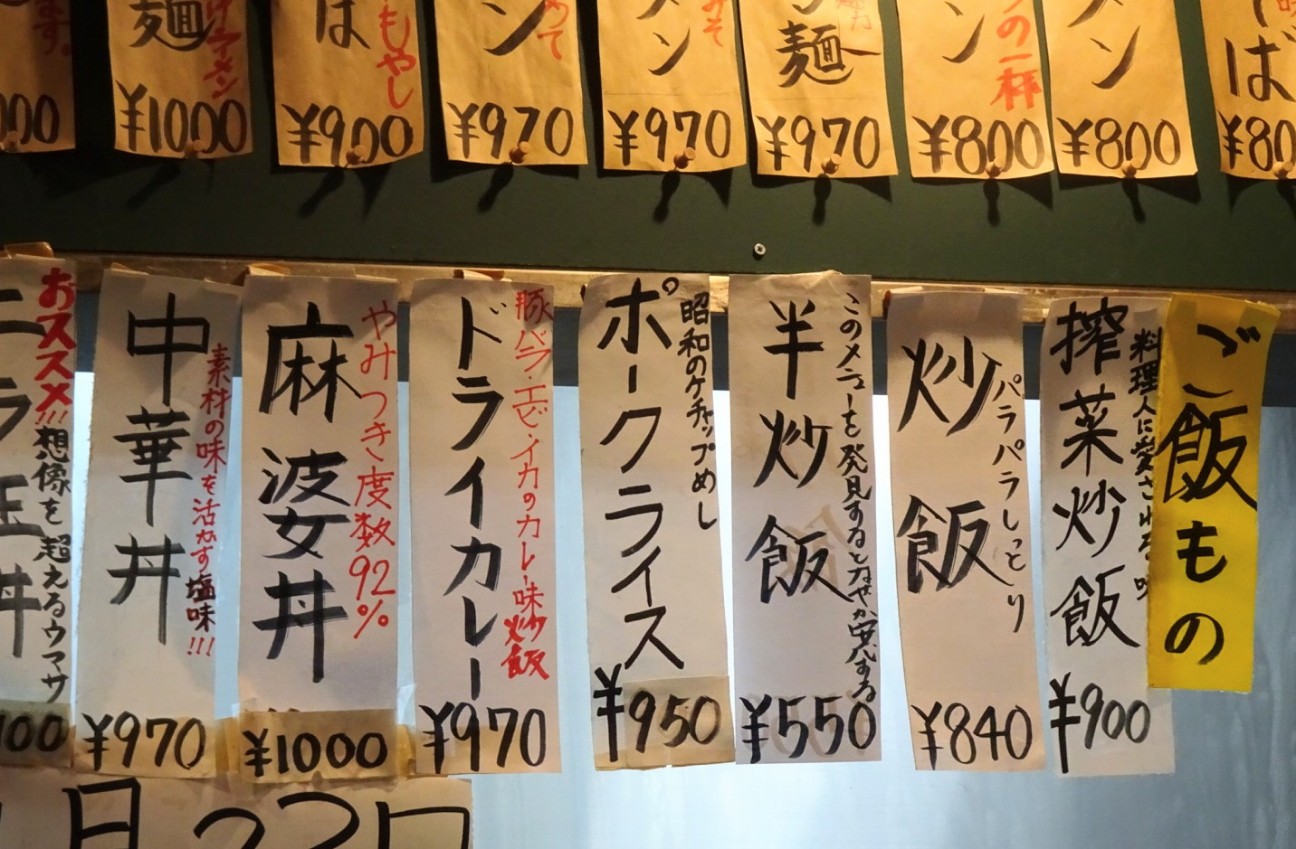 す。
000
麺
ラーメン
¥1000
もやし
ば
¥900
めて
ン
¥970
みそ
メン
¥970
麺
¥970
の一杯
ン
¥800
メン
¥800
ば
¥80
ご飯もの
料理人に愛される味
搾菜炒飯
¥900
パラパラしっとり
炒飯
¥840
このメニューを発見するとなぜか安心する
半炒飯
¥550
昭和のケチャップめし
ポークライス
¥950
豚バラ・エビ・イカのカレー味炒飯
ドライカレー
¥970
やみつき度数92%
麻婆丼
¥1000
素材の味を活かす塩味!!!
中華丼
¥970
おススメ!!!想像を超えるウマサ
ニラ玉丼
100
月22日